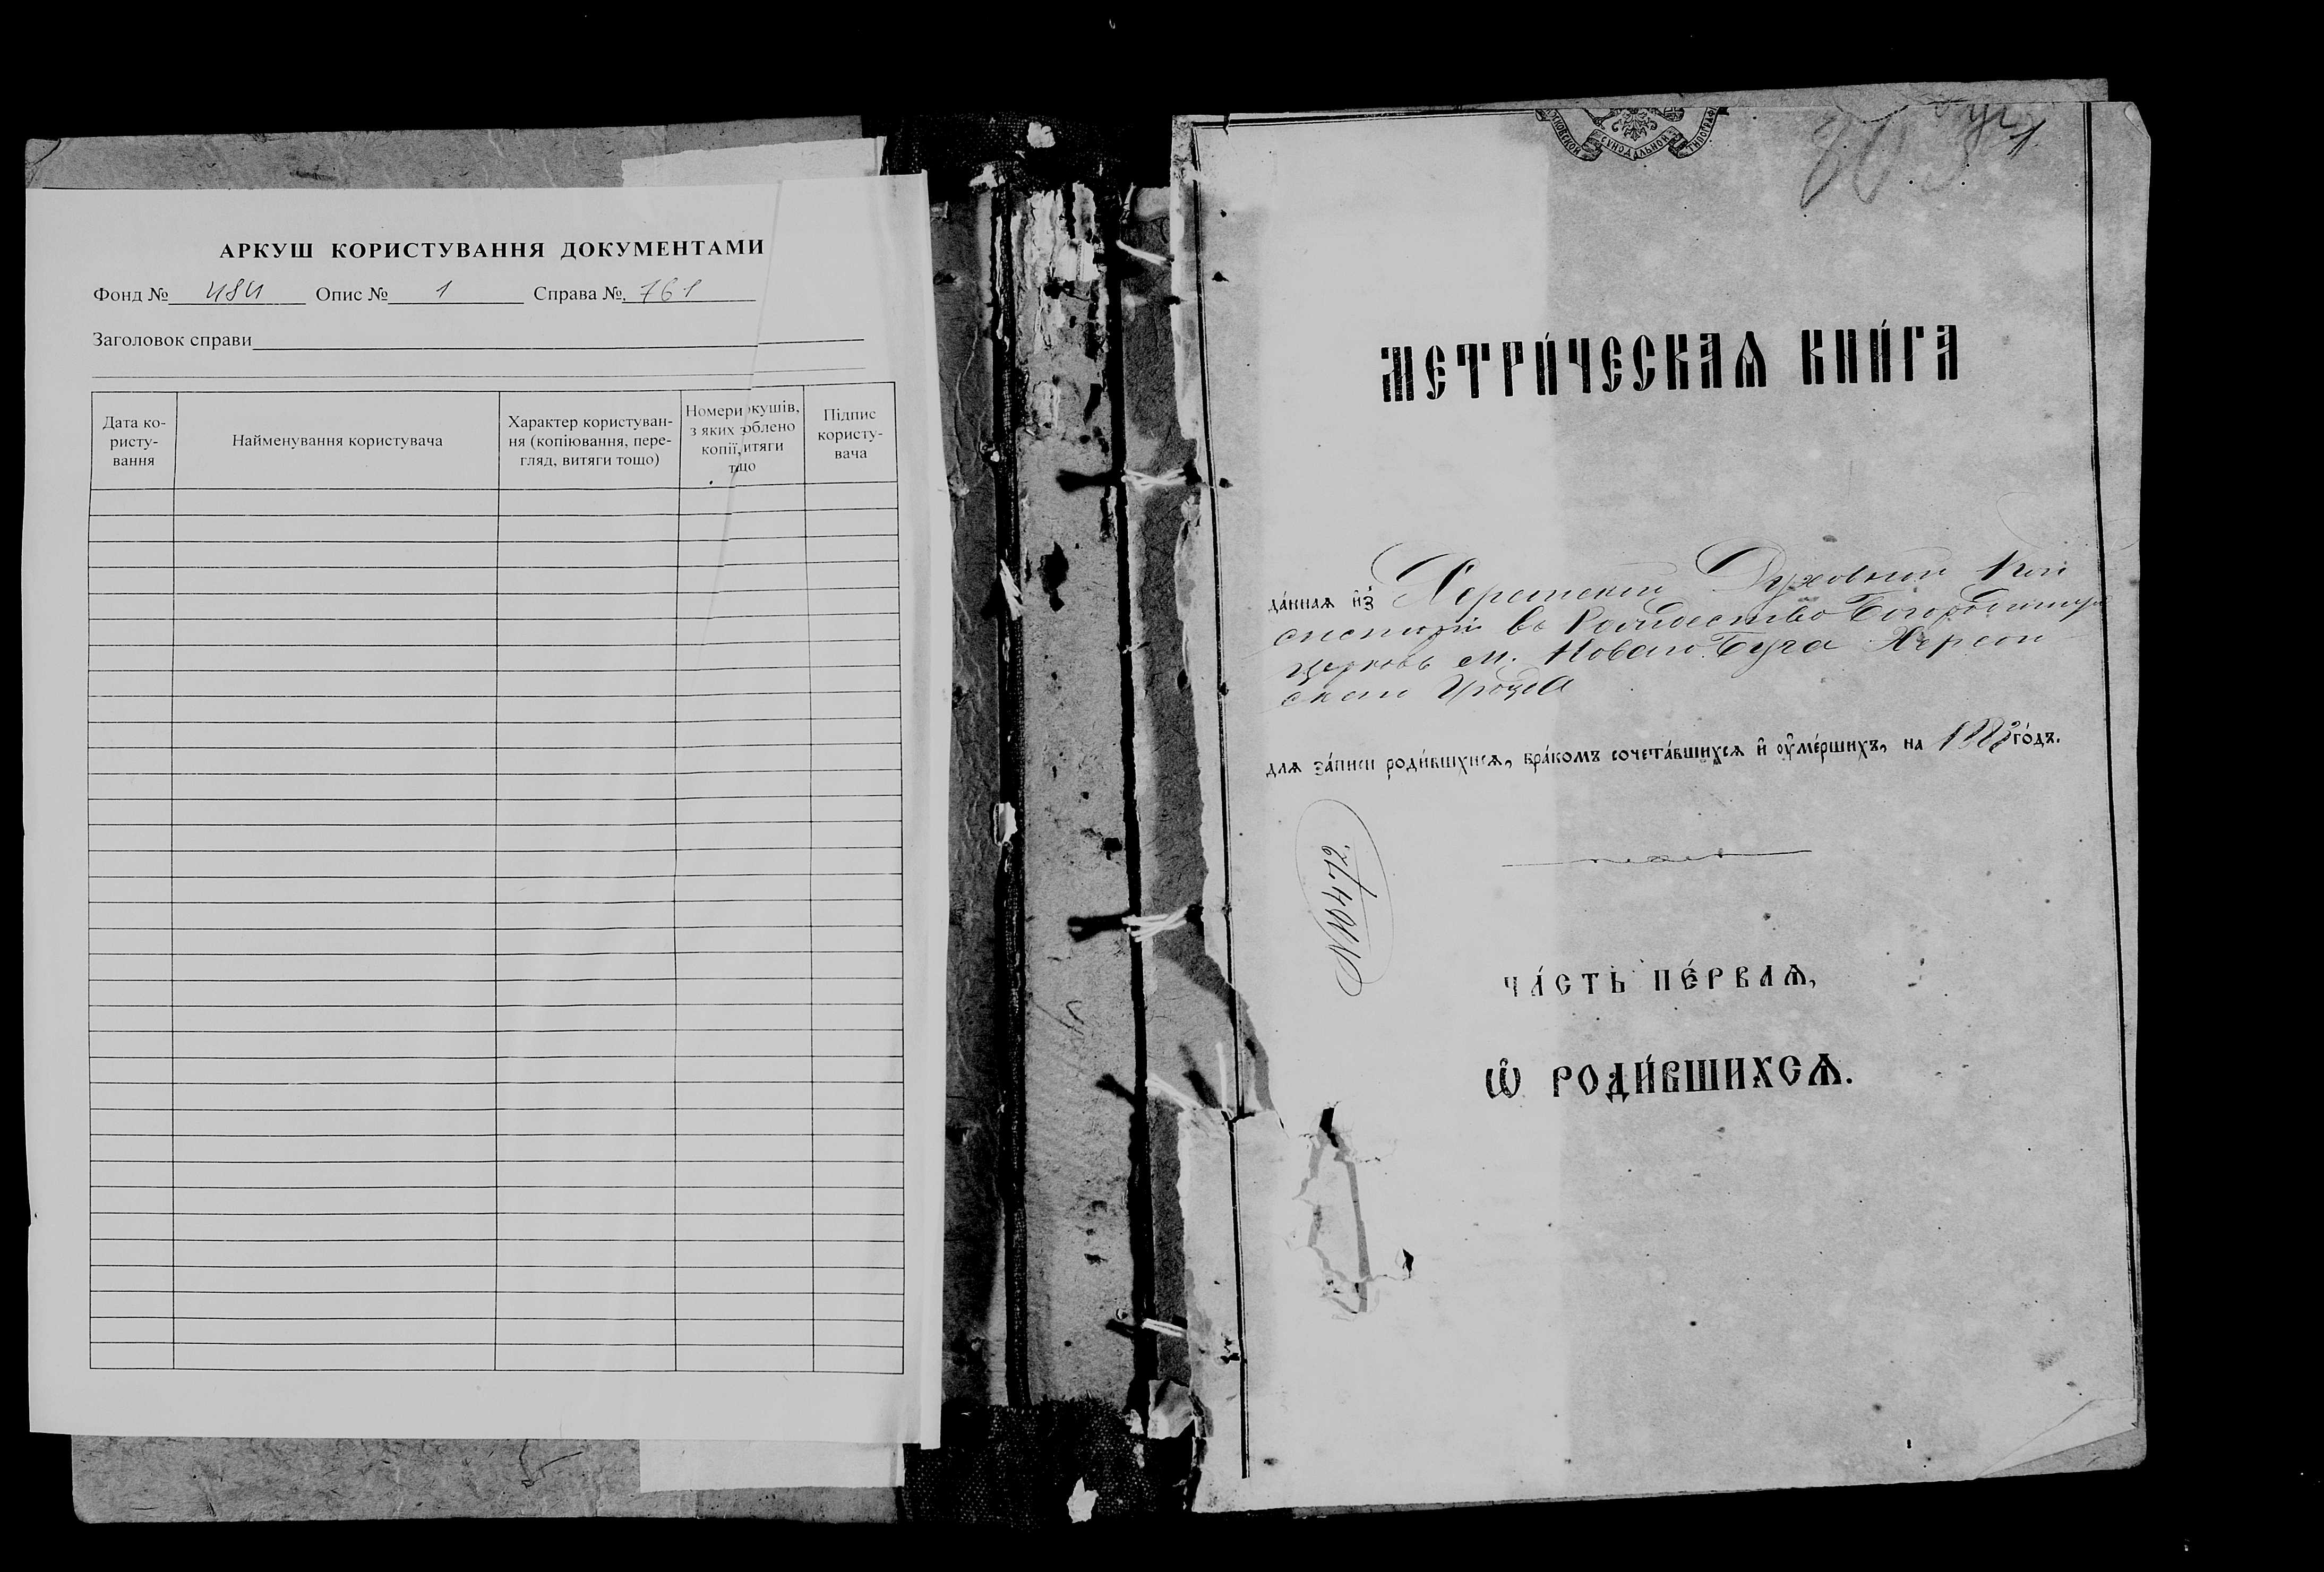 АРКУШ КОРИСТУВАННЯ ДОКУМЕНТАМИ
Фонд № 484 Опис № 1 Справа № 761
Заголовок справи
Дата ко-
ристу-
вання
Найменування користувача
Характер користуван-
ня (копіювання, пере-
гляд, витяги тощо)
Номери кушів,
з яких зоблено
копії, итяги
тщо
Підпис
користу-
вача
СѴНОДАЛЬНОЙ
1
МЕТРИ́ЧЕСКАѦ КНИ́ГА
да́нная и҆з̾ Херсонской Духовной Кон
систоріи въ Рождество Богородичную
церковь м. Новаго Буга Херсон
скаго Уѣзда
для за́писи роди́вшихсѧ, бра́комъ сочета́вшихсѧ и҆ ᲂу҆ме́ршихъ, на 188 го́дъ.
№ 10472.
ЧА́СТЬ ПЕ́РВАѦ,
Ѽ РОДИ́ВШИХСѦ.